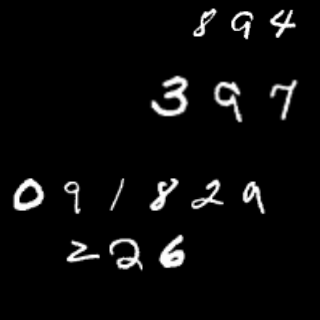 894
397
091829
226